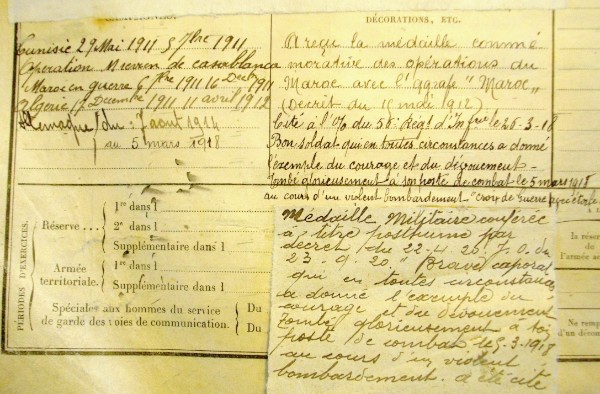 DÉCORATIONS, ETC.
Tunisie 29 Mai 1911 5 7bre 1911
Opération Maroc on casablanca
Maroc en guerre 6 7bre 1911 16 Décb 1911
Algérie 17 Décembre 1911 11 avril 1912
Allemagne du : 7 aout 1914
au 5 mars 1918
A reçu la médaille commé
morative des opérations du
Maroc avec l'Agrafe "Maroc"
(Décret du 16 mai 1912)
Cité à l'O/ du 56e Régt d'Infrie le 26-3-18
Bon soldat qui en toutes circonstances a donné
l'exemple du courage et du dévouement -
tombé glorieusement à son poste de combat le 5 mars 1918
au cours d'un violent bombardement - "Croix de Guerre
Médaille Militaire conférée
à titre posthume par
décret du 22-4 20 J.O. du
23-9-20. " Brave caporal
qui en toutes circonstances
a donné l'exemple du
courage et du dévouement
Tombé glorieusement à son
poste de combat le 5-3-1918
au cours d'un violent
bombardement. a été cité
PÉRIODES D'EXERCICES.
Réserve
1re dans l
2e dans l
Supplémentaire dans l
Armée
territoriale.
1re dans l
Supplémentaire dans l
Spéciales aux hommes du service
de garde des voies de communication.
Du
Du
la réserv
de
l'armée a
Ne comp
d'un déco